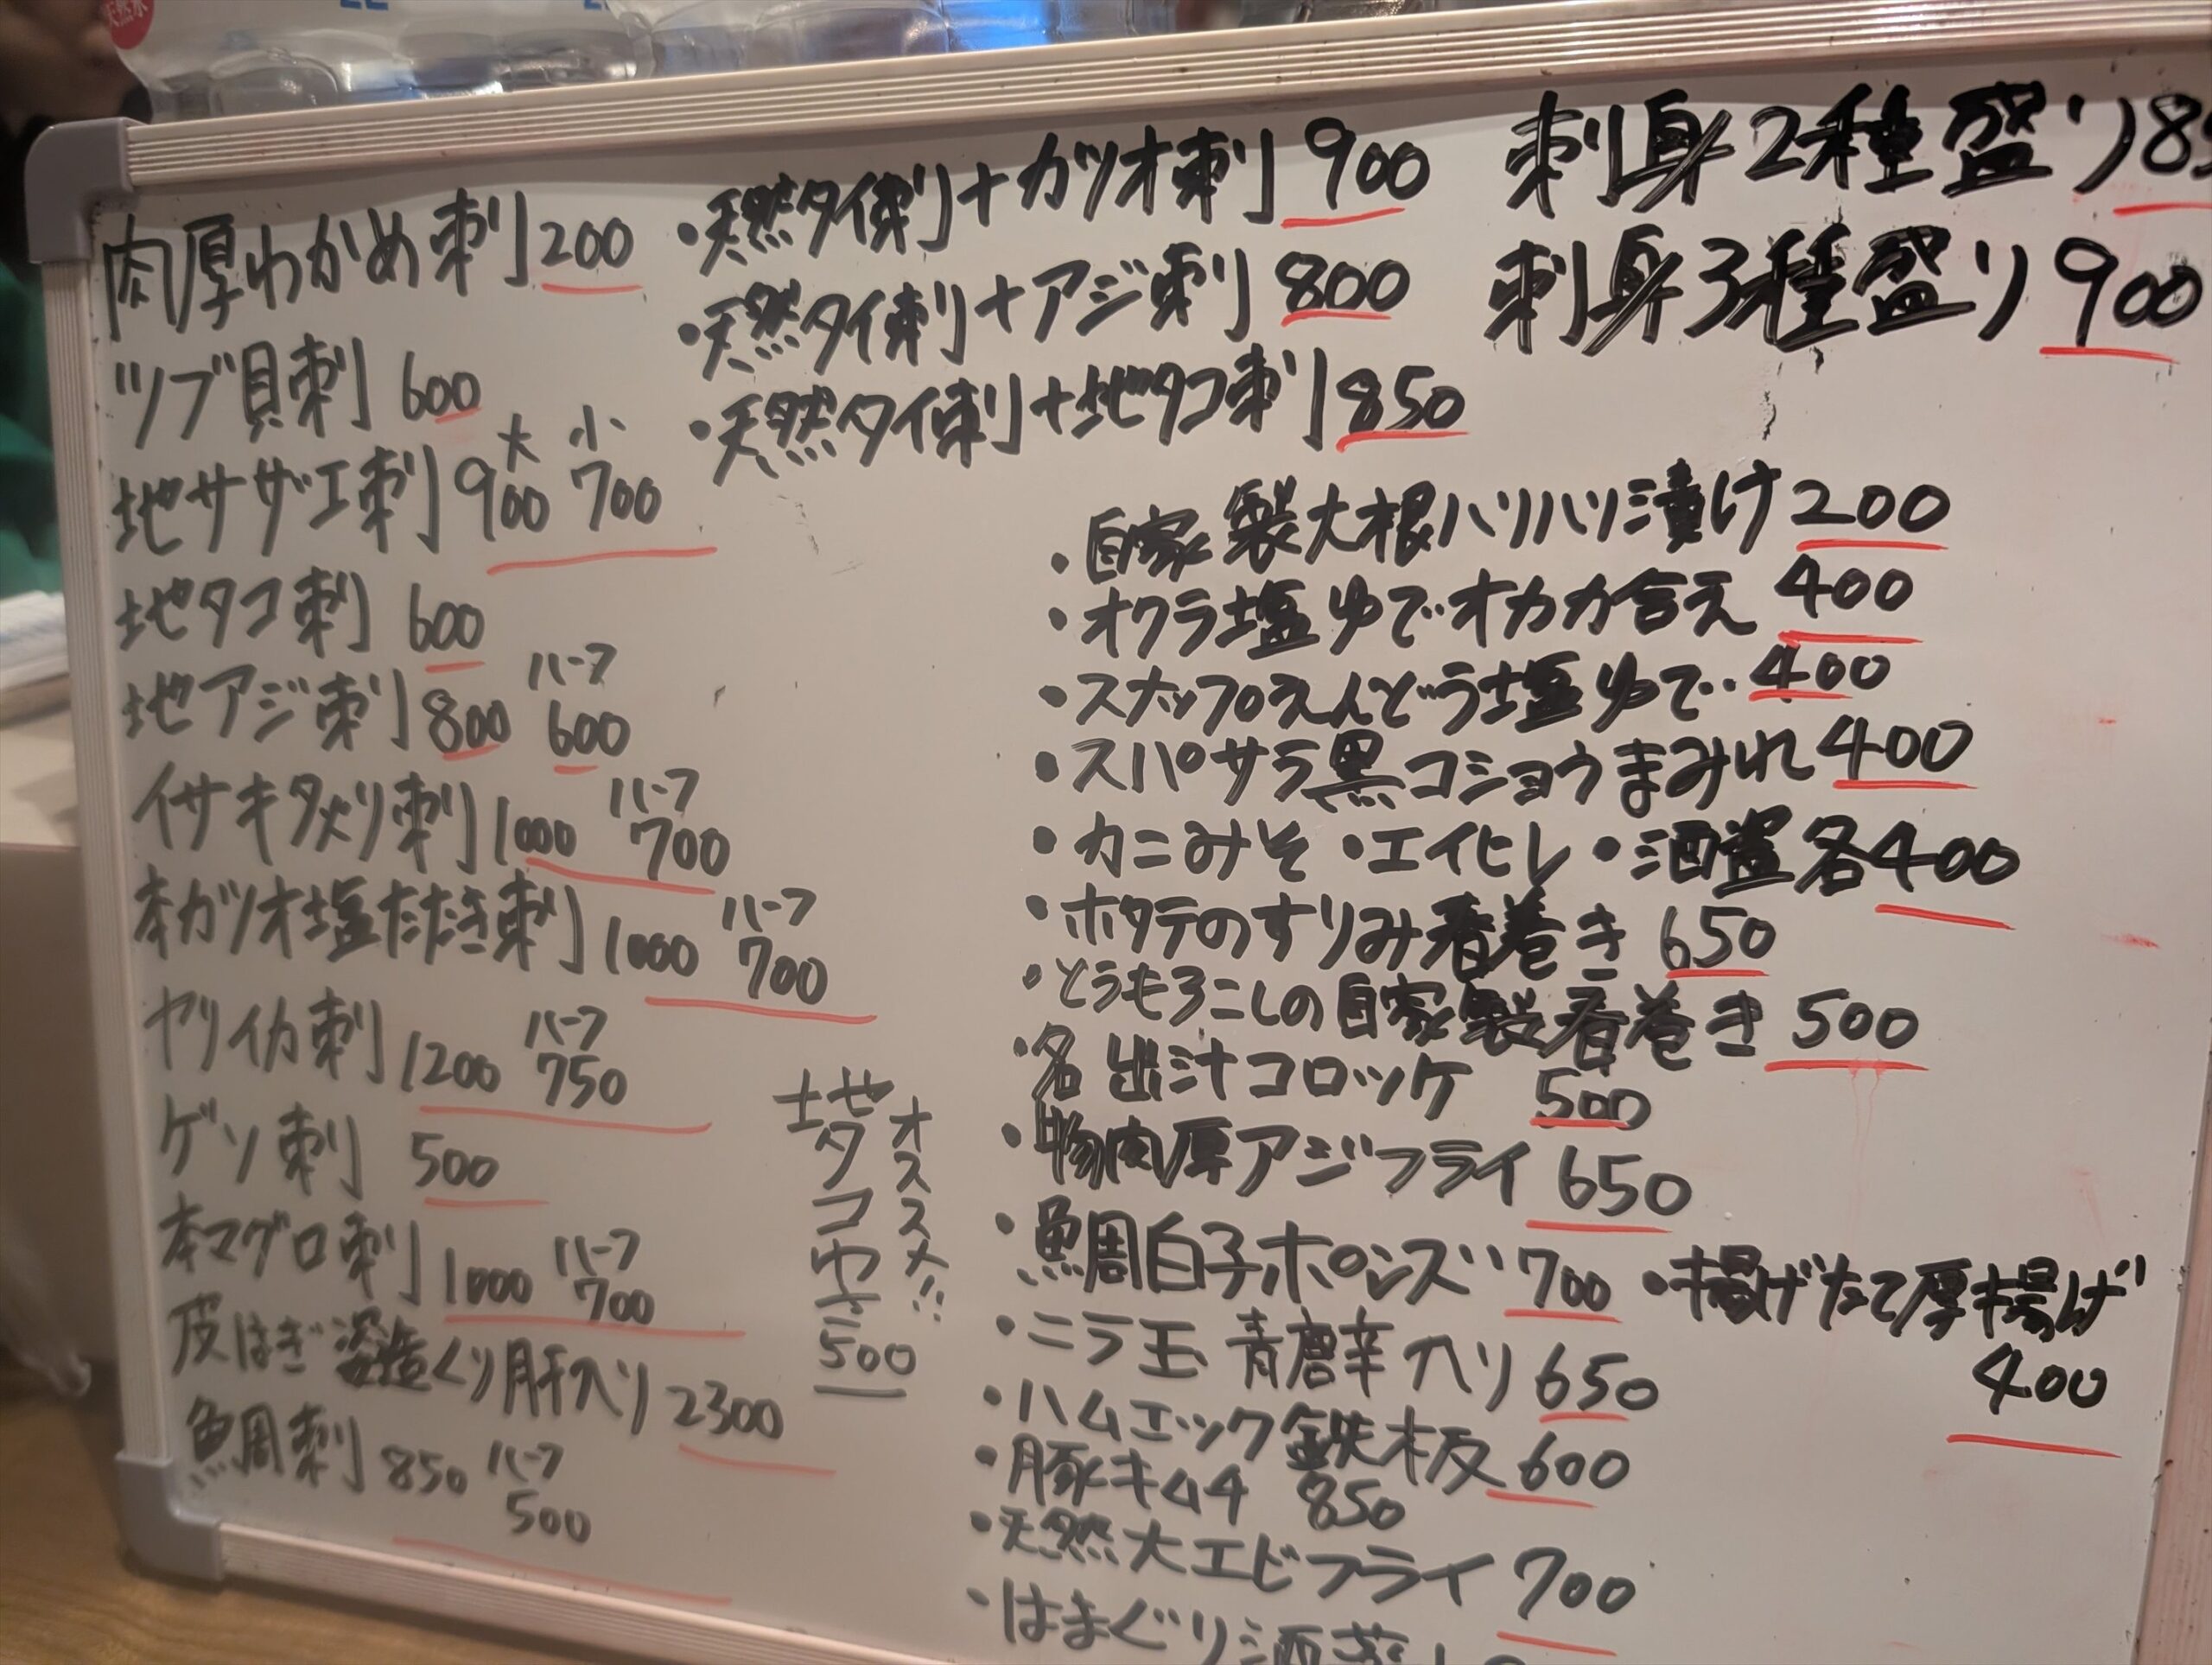 肉厚わかめ刺 200
ツブ貝刺 600
大 小
地サザエ刺 900 700
地タコ刺 600
ハーフ
地アジ刺 800 600
ハーフ
イサキ炙り刺 1000 700
ハーフ
本ガツオ塩たたき刺 1000 700
ハーフ
ヤリイカ刺 1200 750
ゲソ刺 500
ハーフ
本マグロ刺 1000 700
皮はぎ姿造くり肝入り 2300
鯛刺 850 ハーフ
500
オススメ!!
地タコやき
500
・天然タイ刺+カツオ刺 900
・天然タイ刺+アジ刺 800
・天然タイ刺+地タコ刺 850
刺身2種盛り
刺身3種盛り 900
・自家製大根ハリハリ漬け 200
・オクラ塩ゆでオカカ合え 400
・スナップえんどう塩ゆで 400
・スパサラ黒コショウまみれ 400
・カニみそ・エイヒレ・酒盗各400
・ホタテのすりみ春巻き 650
・とうもろこしの自家製春巻き 500
・名出汁コロッケ 500
・肉厚アジフライ 650
・鯛白子ポンズ 700
・揚げたて厚揚げ
400
・ニラ玉 青唐辛入り 650
・ハムエッグ鉄板 600
・豚キムチ 850
・天然大エビフライ 700
・はまぐり酒蒸し